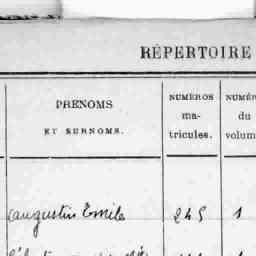 RÉPERTOIRE
PRENOMS
ET SURNOMS.
NUMEROS
ma-
tricules.
NUMÉR
du
volum
augustin Emile 245 1